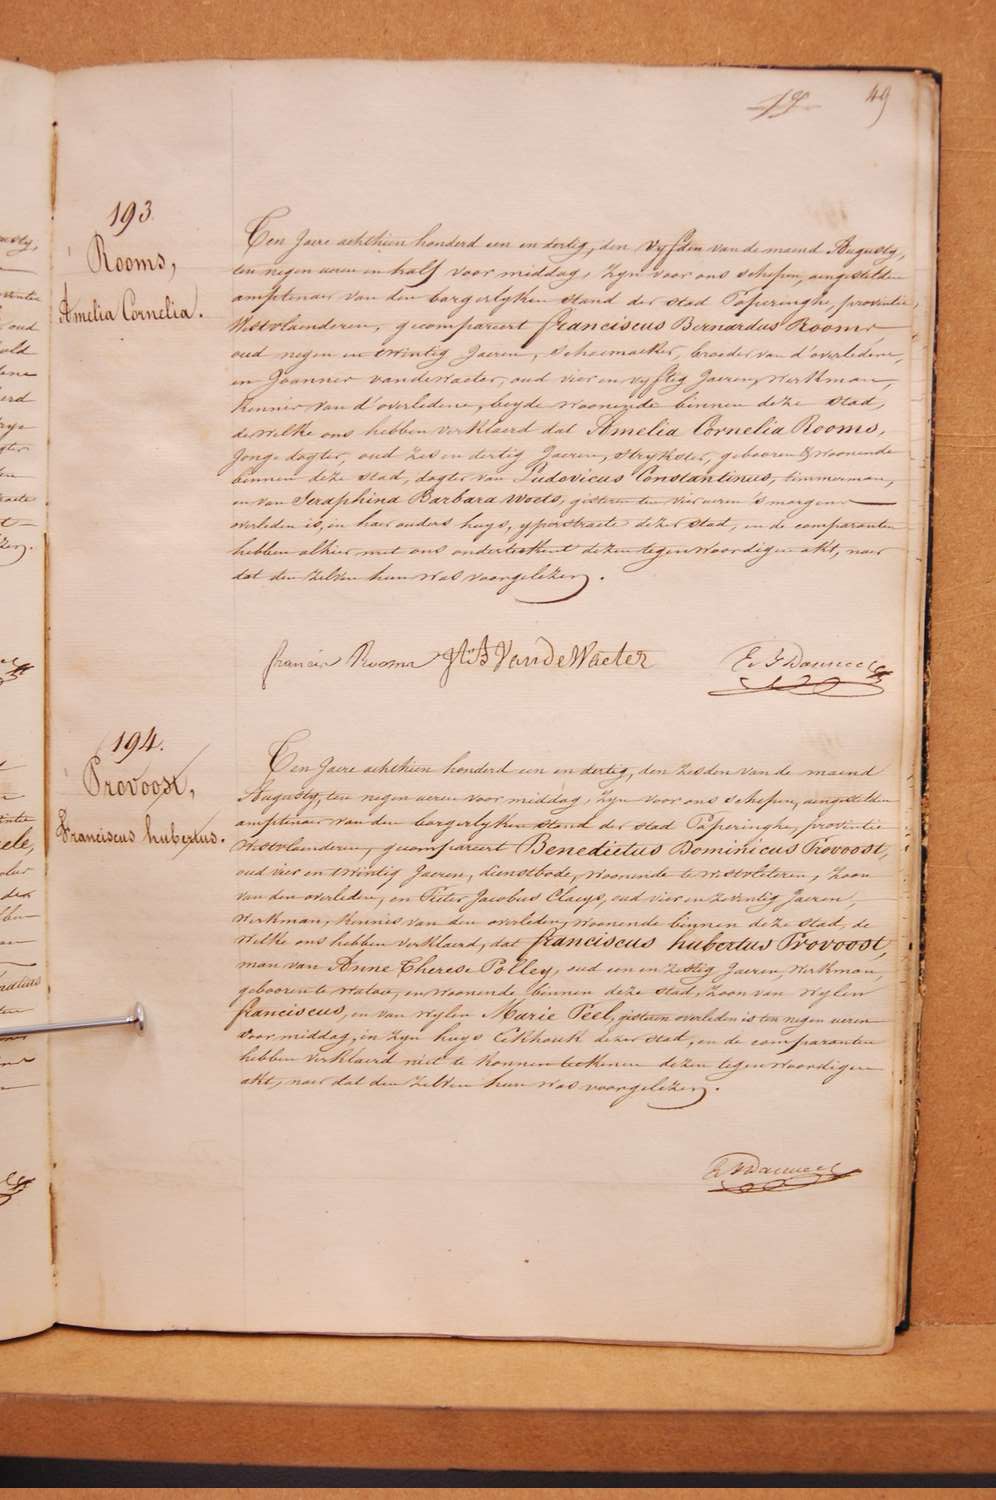 49
193.
Rooms,
Amelia Cornelia.
Ten Jaere achthien honderd een en dertig, den vyfden van de maend Augusty,
ten negen ueren en half voor middag, zyn voor ons schepen, aengestelden
amptenaer van den borgerlyken stand der stad Poperinghe, provintie
Westvlaenderen, gecompareert franciscus Bernardus Rooms
oud negen en twintig Jaeren, schoemaeker, broeder van d'overledene,
en Joannes vandewaeter, oud vier en vyftig Jaeren, werkman,
kennis van d'overledene, beyde woonende binnen deze stad,
dewelke ons hebben verklaerd dat Amelia Cornelia Rooms,
Jonge dogter, oud zes en dertig Jaeren, strykster, gebooren & woonende
binnen deze stad, dogter van Ludovicus Constantinus, timmerman,
en van Seraphina Barbara woets, gisteren ten vier ueren 's morgens
overleden is, in haer ouders huys, yperstraete dezer stad, en de comparanten
hebben alhier met ons onderteekent dezen tegenwoordigen akt, naer
dat den zelven hun was voorgelezen.
francis Rooms VandeWaeter
194.
Provoost,
Franciscus hubertus.
Ten Jaere achthien honderd een en dertig, den zesden van de maend
Augusty, ten negen ueren voor middag, zyn voor ons schepen, aengestelden
amptenaer van den borgerlyken stand der stad Poperinghe, provintie
Westvlaenderen, gecompareert Benedictus Dominicus Provoost,
oud vier en twintig Jaeren, dienstbode, woonende te westvleteren, zoon
van den overleden, en Pieter Jacobus Claeys, oud vier en zeventig Jaeren,
werkman, kennis van den overleden, woonende binnen deze stad, de
welke ons hebben verklaerd, dat franciscus hubertus Provoost,
man van Anne Therese Polley, oud een en zestig Jaeren, werkman,
gebooren te watou, en woonende binnen deze stad, zoon van wylen
franciscus, en van wylen Marie Peel, gisteren overleden is ten negen ueren
voor middag, in zyn huys Eekhouk dezer stad, en de comparanten
hebben verklaerd niet te konnen teekenen dezen tegenwoordigen
akt, naer dat den zelven hun was voorgelezen.